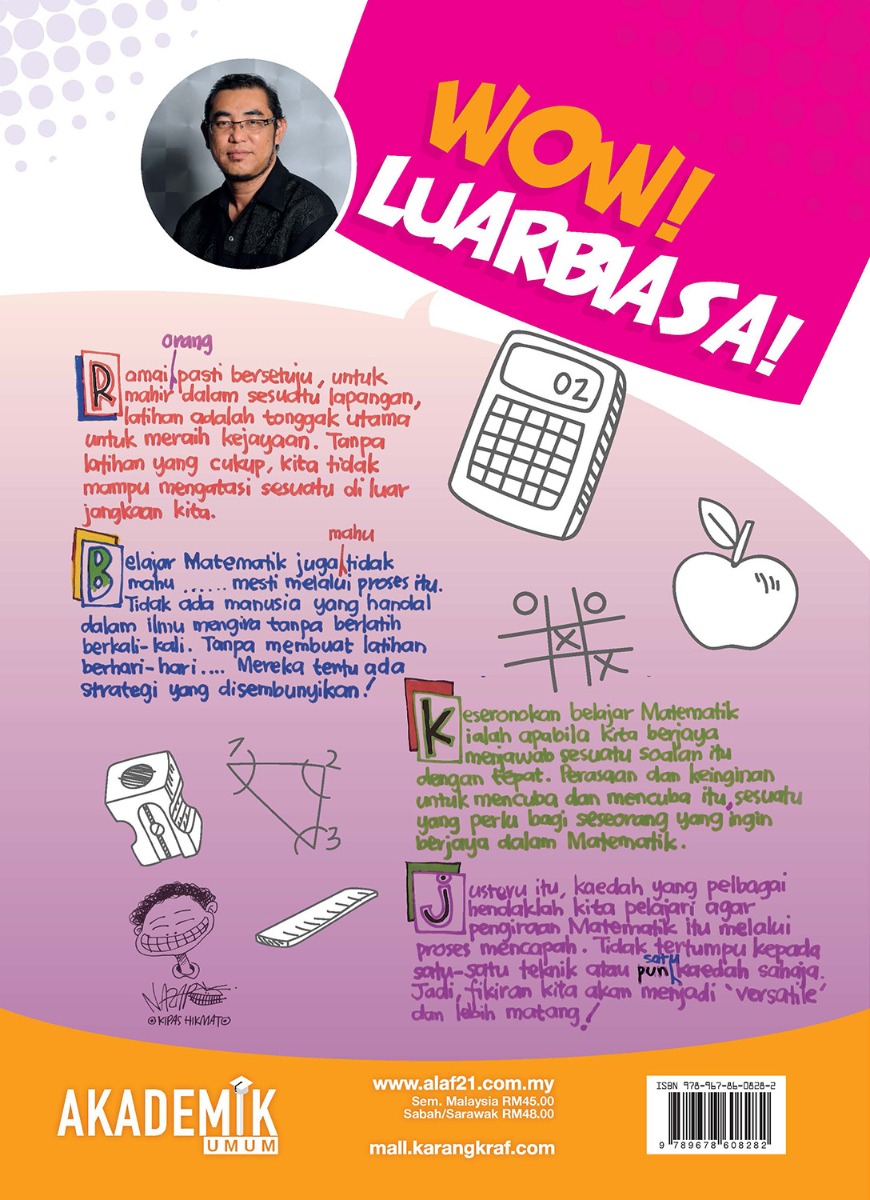 WOW!
LUARBIASA!
orang
Ramai pasti bersetuju, untuk
mahir dalam sesuatu lapangan,
latihan adalah tonggak utama
untuk meraih kejayaan. Tanpa
latihan yang cukup, kita tidak
mampu mengatasi sesuatu di luar
jangkaan kita.
mahu
Belajar Matematik juga tidak
mahu ...... mesti melalui proses itu.
Tidak ada manusia yang handal
dalam ilmu mengira tanpa berlatih
berkali-kali. Tanpa membuat latihan
berhari-hari.... Mereka tentu ada
strategi yang disembunyikan!
02
O O
X
X
Keseronokan belajar Matematik
ialah apabila kita berjaya
menjawab sesuatu soalan itu
dengan tepat. Perasaan dan keinginan
untuk mencuba dan mencuba itu, sesuatu
yang perlu bagi seseorang yang ingin
berjaya dalam Matematik.
1
2
3
Justeru itu, kaedah yang pelbagai
hendaklah kita pelajari agar
pengiraan Matematik itu melalui
proses mencapah. Tidak tertumpu kepada
satu
satu-satu teknik atau pun kaedah sahaja.
Jadi, fikiran kita akan menjadi 'versatile'
dan lebih matang!
©KIPAS HIKMAT©
AKADEMIK
UMUM
www.alaf21.com.my
Sem. Malaysia RM45.00
Sabah/Sarawak RM48.00
mall.karangkraf.com
ISBN 978-967-86-0828-2
9 789678 608282